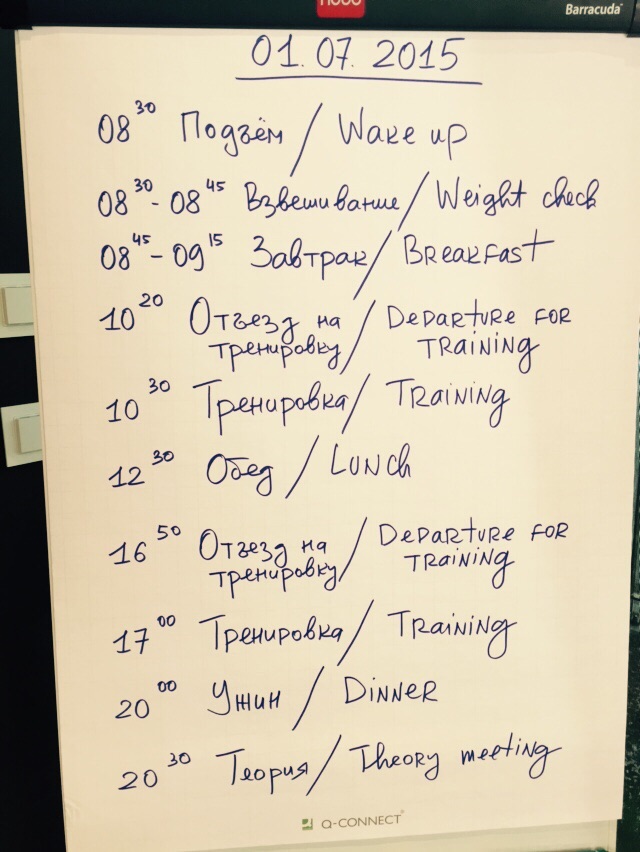 nobo
Barracuda
01.07.2015
08 30 Подъём / Wake up
08 30 - 08 45 Взвешивание / Weight check
08 45 - 09 15 Завтрак / Breakfast
10 20 Отъезд на / Departure for
тренировку / training
10 30 Тренировка / Training
12 30 Обед / Lunch
16 50 Отъезд на / Departure for
тренировку / training
17 00 Тренировка / Training
20 00 Ужин / Dinner
20 30 Теория / Theory meeting
Q-CONNECT